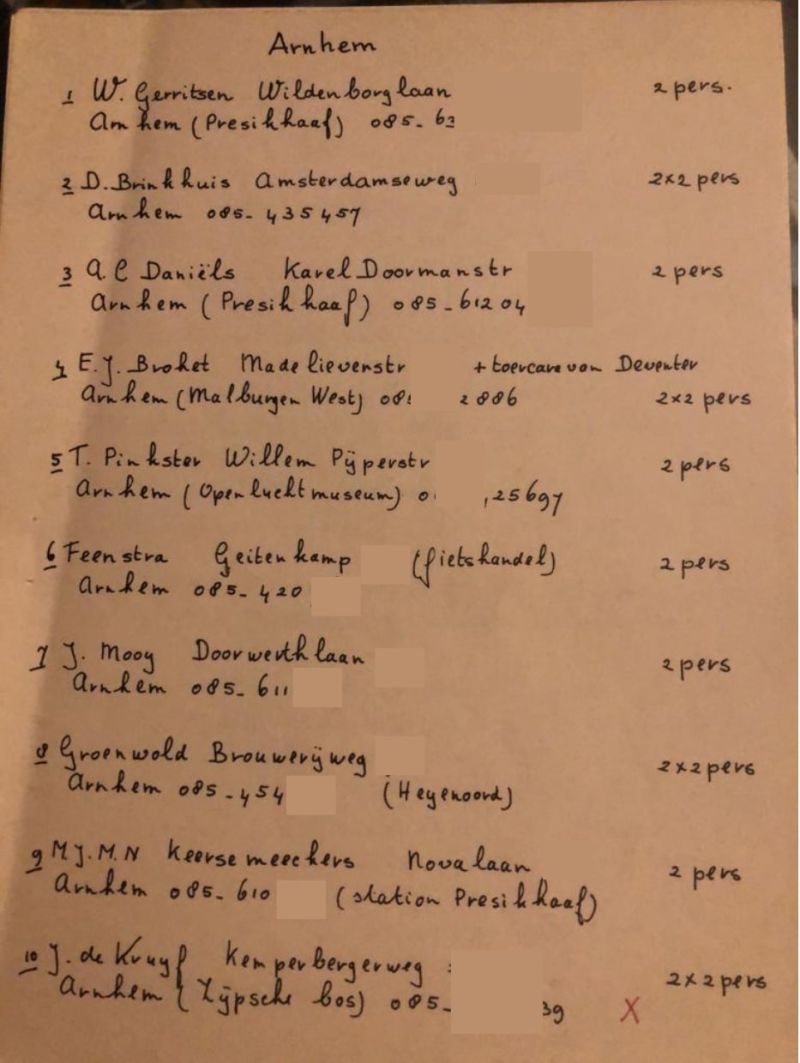 Arnhem
1 W. Gerritsen Wildenborglaan 2 pers.
Arnhem (Presikhaaf) 085-63
2 D. Brinkhuis Amsterdamseweg 2x2 pers
Arnhem 085-435457
3 A.C Daniëls Karel Doormanstr 2 pers
Arnhem (Presikhaaf) 085-61204
4 E.J. Brohet Madelievenstr + toercaravan Deventer
Arnhem (Malburgen West) 08 2886 2x2 pers
5 T. Pinkster Willem Pijperstr 2 pers
Arnhem (Openluchtmuseum) 0 25697
6 Feenstra Geitenkamp (fietshandel) 2 pers
Arnhem 085-420
7 J. Mooy Doorwerthlaan 2 pers
Arnhem 085-611
8 Groenwold Brouwerijweg 2x2 pers
Arnhem 085-454 (Heyenoord)
9 M.J.M.N Keersemeechers Novalaan 2 pers
Arnhem 085-610 (station Presikhaaf)
10 J. de Kruyf Kemperbergerweg 2x2 pers
Arnhem (Zijpsche bos) 085- 39 X